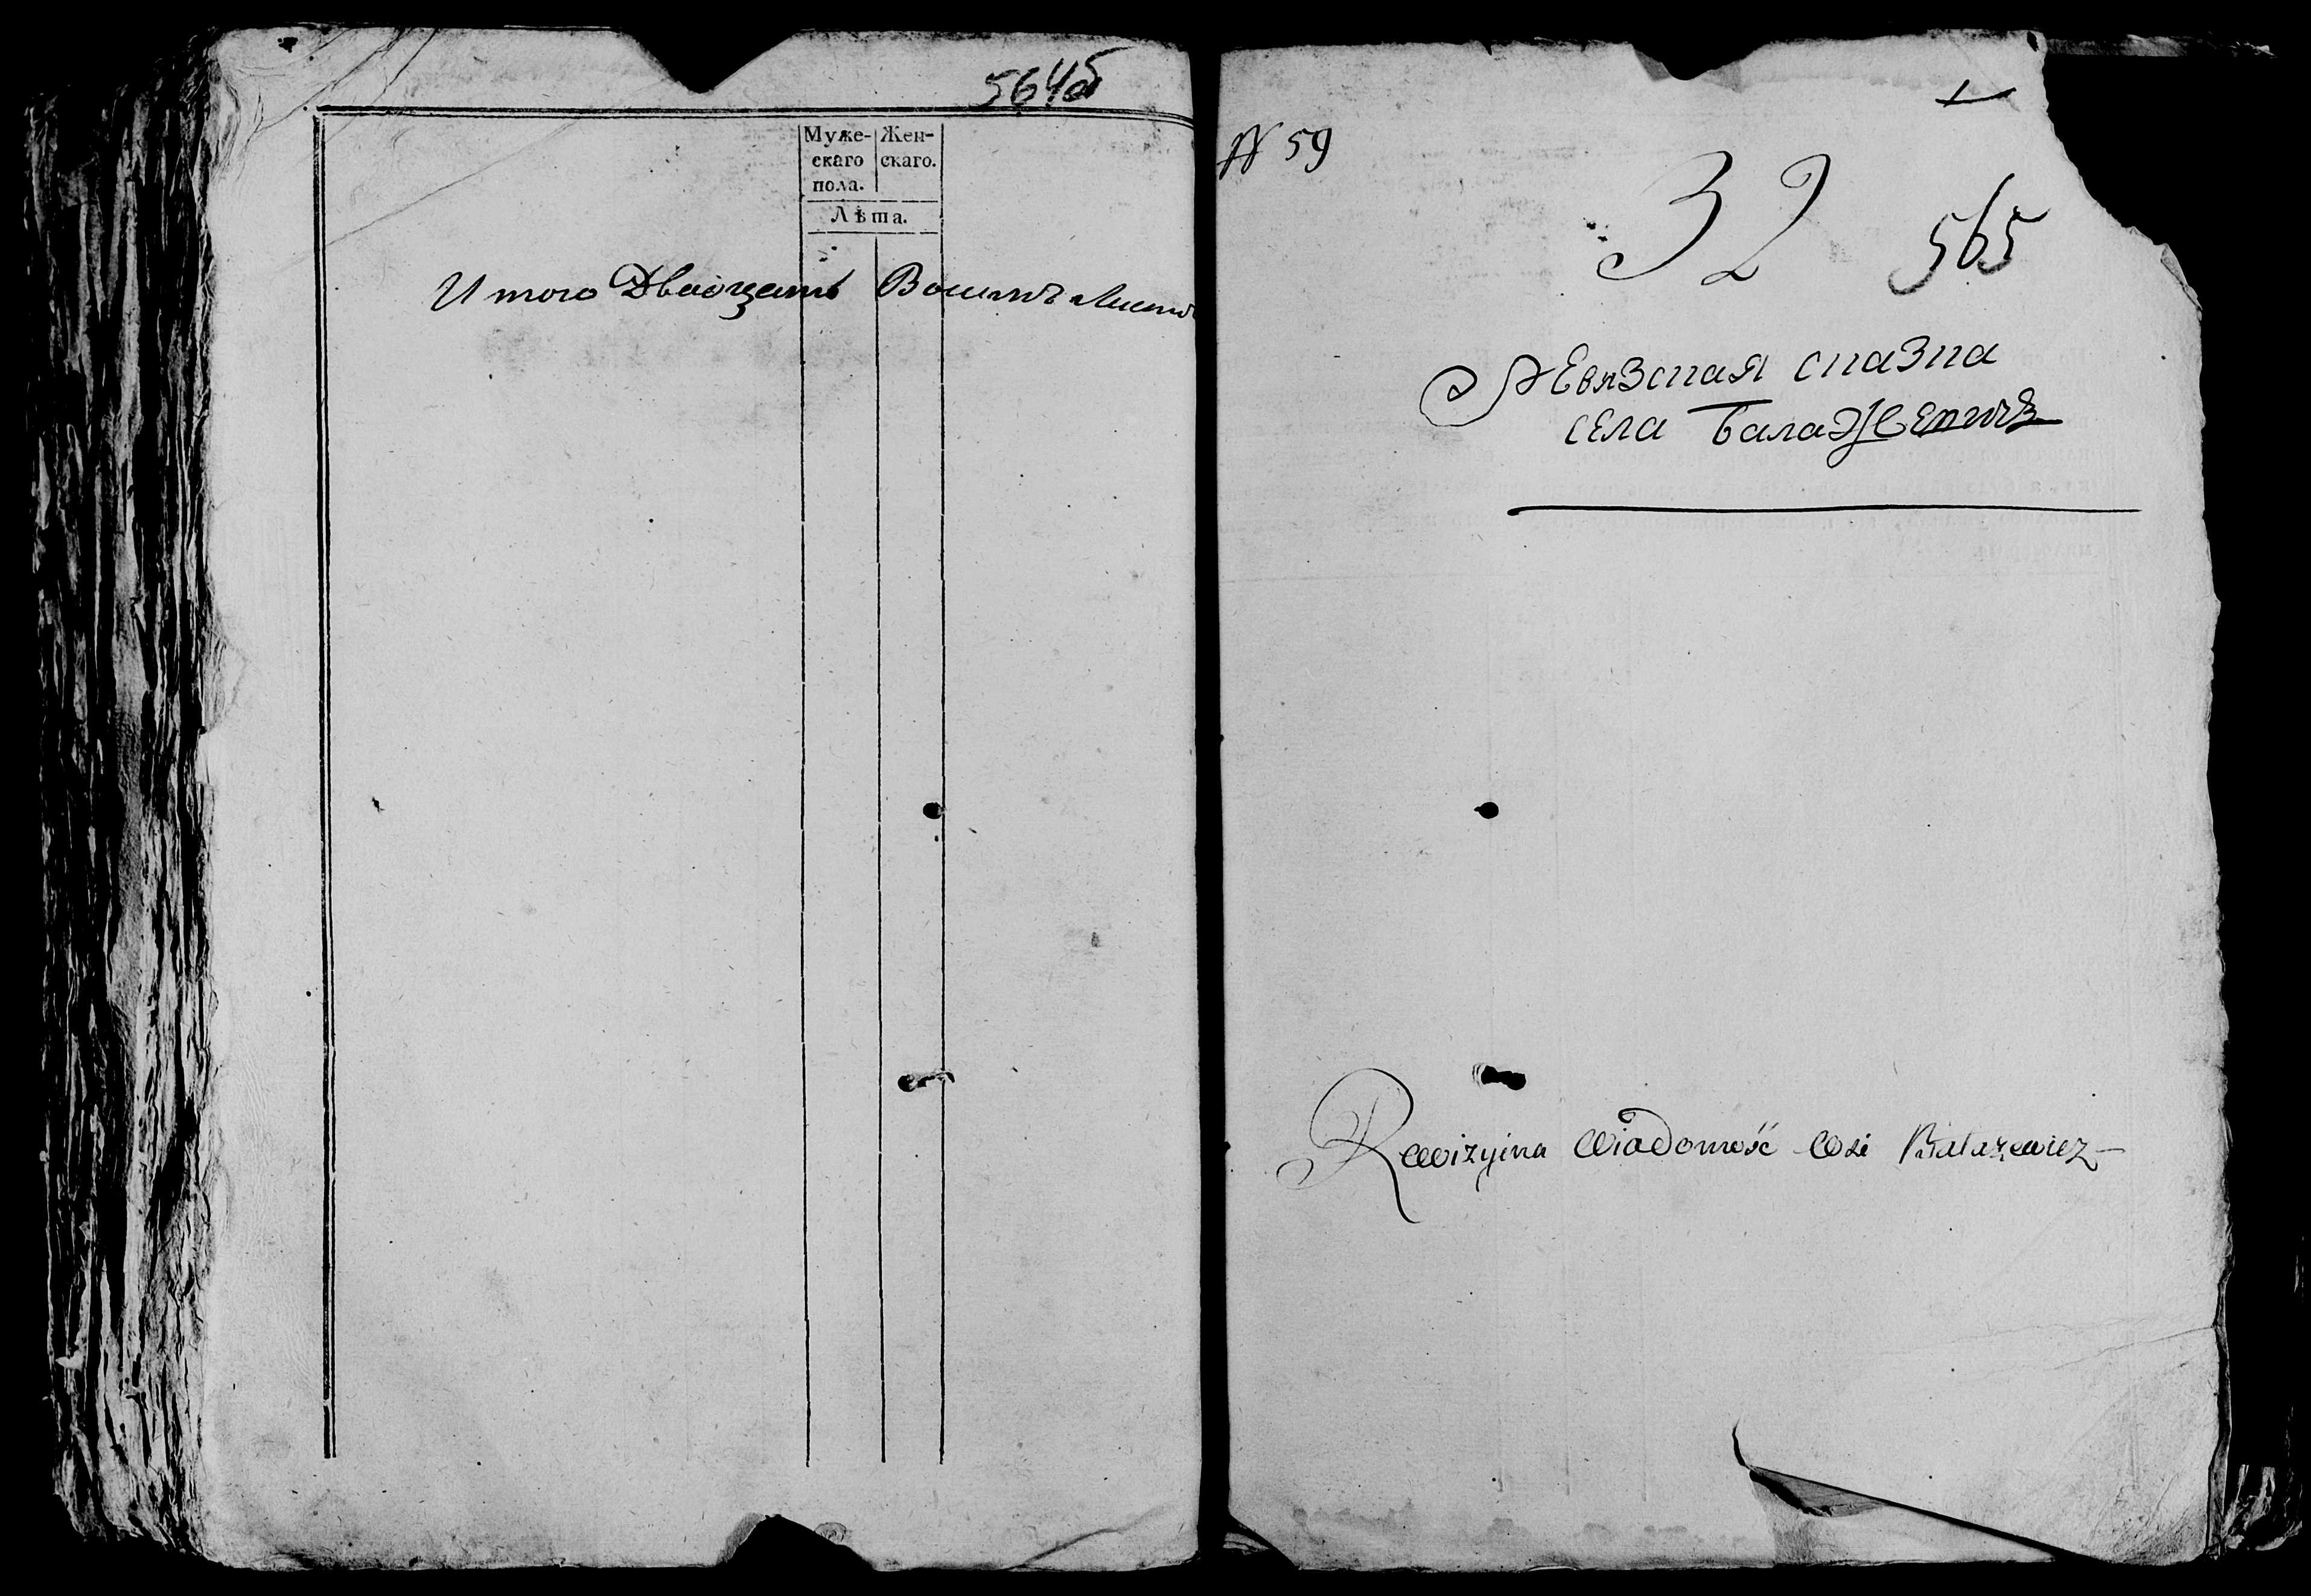 564об
Муже- Жен-
скаго скаго.
пола.
Лѣта.
Итого Двадцать Восемъ Листо
1
N 59
32
565
Ревѣзская сказка
села Балажевичъ
Rewizyina Wiadomość Wsi Bałażewicz